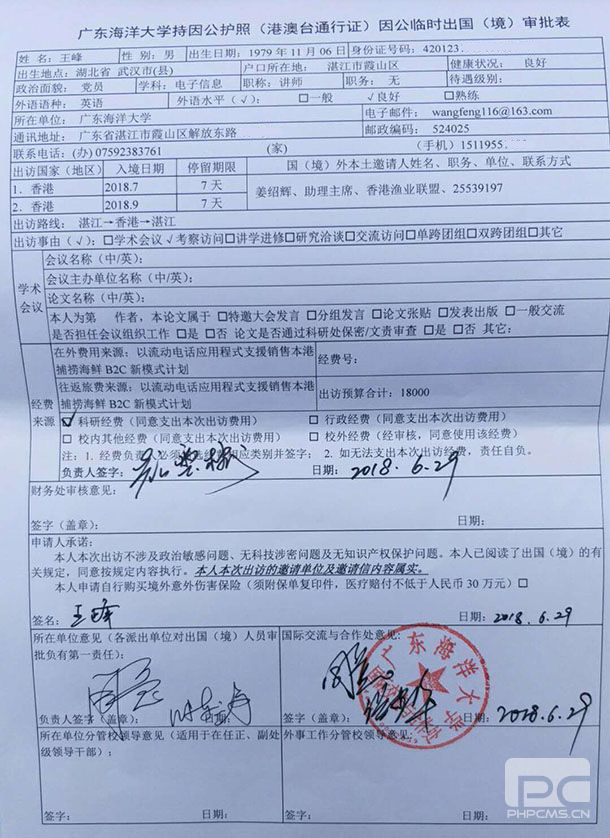 广东海洋大学持因公护照（港澳台通行证）因公临时出国（境）审批表
姓名：王峰 性别：男 出生日期：1979年11月06日 身份证号码：420123
出生地点：湖北省 武汉市(县) 户口所在地：湛江市霞山区 健康状况：良好
政治面貌：党员 学科：电子信息 职称：讲师 职务：无 待遇级别：
外语语种：英语 外语水平（√）：□一般 √良好 □熟练
所在单位：广东海洋大学 电子邮件：wangfeng116@163.com
通讯地址：广东省湛江市霞山区解放东路 邮政编码：524025
联系电话：(办)07592383761 （家） （手机）1511955
出访国家（地区） 入境日期 停留期限 国（境）外本土邀请人姓名、职务、单位、联系方式
1．香港 2018.7 7天 姜绍辉、助理主席、香港渔业联盟、25539197
2．香港 2018.9 7天
出访路线：湛江→香港→湛江
出访事由（√）：□学术会议√考察访问□讲学进修□研究洽谈□交流访问□单跨团组□双跨团组□其它
学术会议
会议名称（中/英）：
会议主办单位名称（中/英）：
论文名称（中/英）：
本人为第 作者，本论文属于 □特邀大会发言 □分组发言 □论文张贴 □发表出版 □一般交流
是否担任会议组织工作 □是 □否 论文是否通过科研处保密/文责审查 □是 □否 其它：
经费来源
在外费用来源：以流动电话应用程式支援销售本港捕捞海鲜 B2C 新模式计划
经费号：
往返旅费来源：以流动电话应用程式支援销售本港捕捞海鲜 B2C 新模式计划
出访预算合计：18000
☑科研经费（同意支出本次出访费用） □行政经费（同意支出本次出访费用）
□校内其他经费（同意支出本次出访费用） □校外经费（经审核，同意使用该经费）
注：1. 经费负责人必须勾选经费相应类别并签字； 2. 如无法支出本次出访经费，责任自负。
负责人签字： 日期：2018.6.29
财务处审核意见：
签字（盖章）： 日期：
申请人承诺：
本人本次出访不涉及政治敏感问题、无科技涉密问题及无知识产权保护问题。本人已阅读了出国（境）的有
关规定，同意按规定内容执行。本人本次出访的邀请单位及邀请信内容属实。
本人申请自行购买境外意外伤害保险（须附保单复印件，医疗赔付不低于人民币 30 万元）□
签名：王峰 日期：2018.6.29
所在单位意见（各派出单位对出国（境）人员审批负有第一责任）：
国际交流与合作处意见：
广东海洋大学
负责人签字（盖章）： 签字（盖章）： 日期：2018.6.29
所在单位分管校领导意见（适用于在任正、副处级领导干部）：
外事工作分管校领导意见：
签字： 日期： 签字： 日期：
PC
PHPCMS.CN